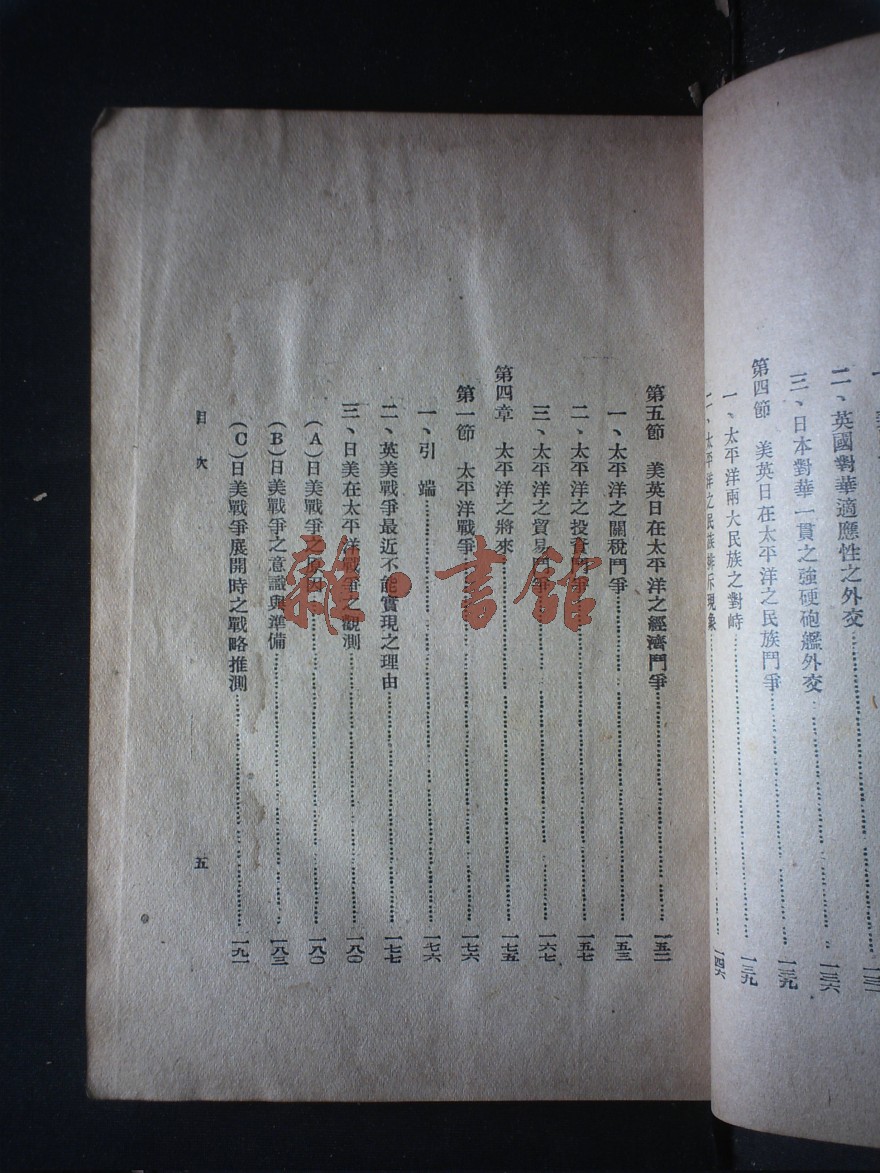 二、英國對華適應性之外交 一三六
三、日本對華一貫之強硬砲艦外交 一三九
第四節 美英日在太平洋之民族鬥爭 一三九
一、太平洋兩大民族之對峙 一三九
二、太平洋之民族排斥現象 一四六
第五節 美英日在太平洋之經濟鬥爭 一五二
一、太平洋之關稅鬥爭 一五三
二、太平洋之投資鬥爭 一五七
三、太平洋之貿易鬥爭 一六七
第四章 太平洋之將來 一七五
第一節 太平洋戰爭 一七六
一、引端 一七六
二、英美戰爭最近不能實現之理由 一七七
三、日美在太平洋戰爭之觀測 一八〇
(A)日美戰爭之原因 一八〇
(B)日美戰爭之意識與準備 一八三
(C)日美戰爭展開時之戰略推測 一九一
目次
五
雜·書館